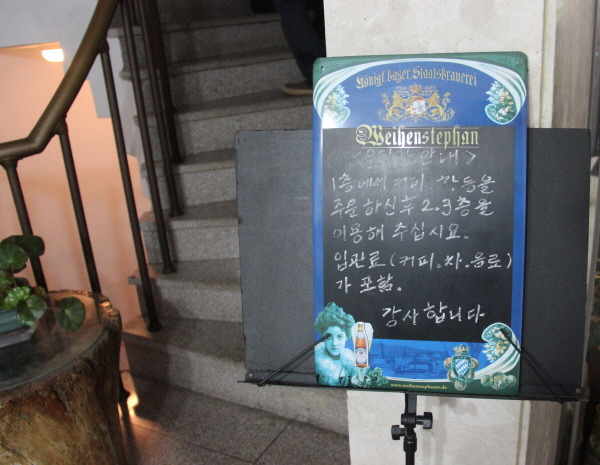 Königl. bayer. Staatsbrauerei
Weihenstephan
안내>
1층에서 커피 깡통을
주문 하신 후 2.3층을
이용해 주십시요.
입관료(커피.차.음료)
가 포함.
감사합니다
www.weihenstephaner.de